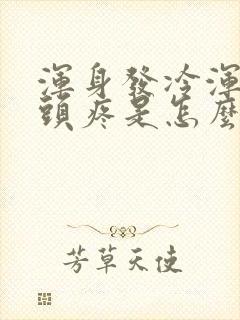 渾身發冷渾
頭疼是怎麼
芳草天使